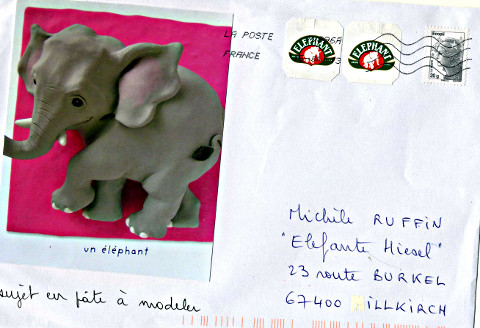 LA POSTE
FRANCE
ELEPHANT
ELEPHANT
un éléphant
sujet en pâte à modeler
Michèle RUFFIN
"Elefante Hiesel"
23 route BURKEL
67400 ILLKIRCH